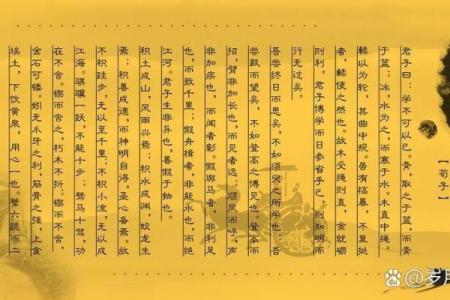 【荀子】
君子曰:学不可以已。青,取之于蓝,而青
于蓝;冰,水为之,而寒于水。木直中绳,
輮以为轮,其曲中规。虽有槁暴,不复挺
者,輮使之然也。故木受绳则直,金就砺
则利,君子博学而日参省乎己,则知明而
行无过矣。
吾尝终日而思矣,不如须臾之所学也。吾
尝跂而望矣,不如登高之博见也。登高而
招,臂非加长也,而见者远;顺风而呼,声
非加疾也,而闻者彰。假舆马者,非利足
也,而致千里;假舟楫者,非能水也,而绝
江河。君子生非异也,善假于物也。
积土成山,风雨兴焉;积水成渊,蛟龙生
焉;积善成德,而神明自得,圣心备焉。故
不积跬步,无以至千里;不积小流,无以成
江海。骐骥一跃,不能十步;驽马十驾,功
在不舍。锲而舍之,朽木不折;锲而不舍,
金石可镂。蚓无爪牙之利,筋骨之强,上食
埃土,下饮黄泉,用心一也。蟹六跪而二
@岁